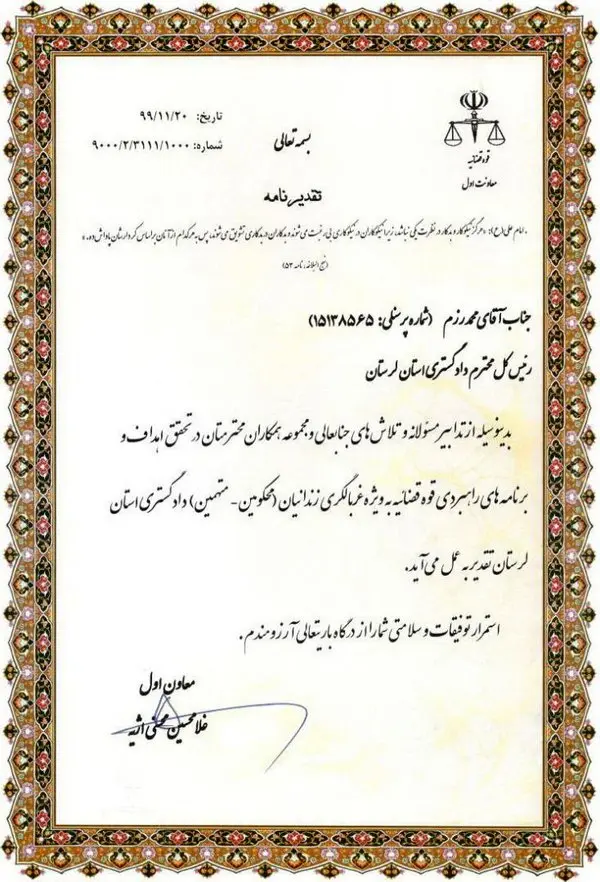 قوه قضائیه
معاونت اول
تاریخ: ۹۹/۱۱/۲۰
شماره: ۹۰۰۰/۲/۳۱۱۱/۱۰۰۰
بسمه تعالی
تقدیرنامه
امام علی(ع): «هرگز نیکوکار و بدکار در نظرت یکی نباشند، زیرا نیکوکاران در نیکوکاری بی رغبت می شوند و بدکاران در بدکاری تشویق می شوند، پس به هر کدام از آنان بر اساس کردارشان پاداش ده.»
(نهج البلاغه، نامه ۵۳)
جناب آقای محمد رزم (شماره پرسنلی: ۱۵۱۳۸۵۶۵)
رئیس کل محترم دادگستری استان لرستان
بدینوسیله از تدابیر مسئولانه و تلاش های جنابعالی و مجموعه همکاران محترمتان در تحقق اهداف و
برنامه های راهبردی قوه قضائیه به ویژه غربالگری زندانیان (محکومین- متهمین) دادگستری استان
لرستان تقدیر به عمل می آید.
استمرار توفیقات و سلامتی شما را از درگاه باریتعالی آرزومندم.
معاون اول
غلامحسین محسنی اژیه